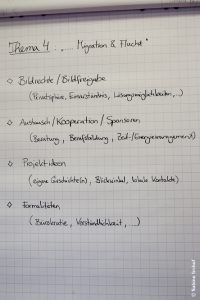 Thema 4 ..... Migration & Flucht"
◇ Bildrechte / Bildfreigabe
(Privatsphäre, Einverständnis, Lösungsmöglichkeiten,...)
◇ Austausch / Kooperation / Sponsoren
(Beratung, Berufsbildung, Zeit-/Energiemanagement)
◇ Projektideen
(eigene Geschichte(n), Blickwinkel, lokale Kontakte)
◇ Formalitäten
(Bürokratie, Verständlichkeit, ...)